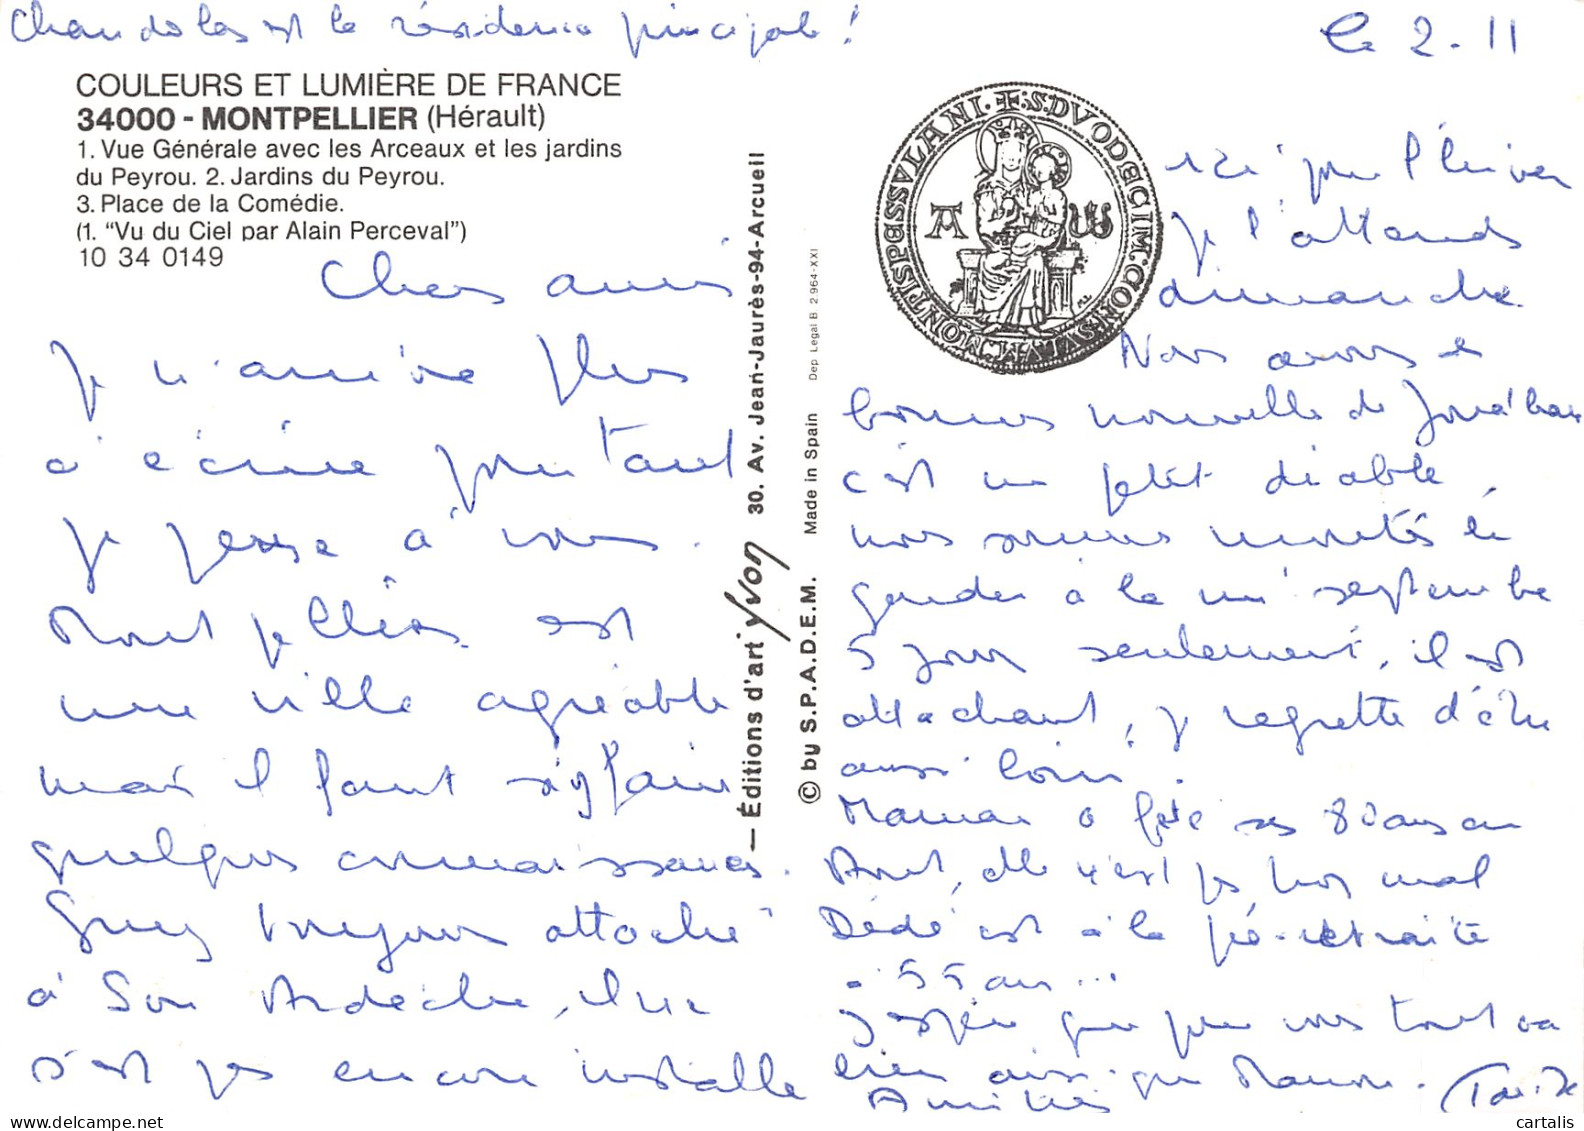 Chandolas est la résidence principale !
le 2.11
COULEURS ET LUMIÈRE DE FRANCE
34000 - MONTPELLIER (Hérault)
1. Vue Générale avec les Arceaux et les jardins
du Peyrou. 2. Jardins du Peyrou.
3. Place de la Comédie.
(1. "Vu du Ciel par Alain Perceval")
10 34 0149
Chers amis
Je n'arrive plus
à écrire pourtant
je pense à vous.
Montpellier est
une ville agréable
mais il faut s'y faire
quelques connaissances.
Guy toujours attaché
à son Ardèche, il ne
s'est pas encore installé
Éditions d'art Yvon 30. Av. Jean-Jaurès-94-Arcueil
© by S.P.A.D.E.M. Made in Spain Dep Legal B 2.964-XXI
A W
ici pour l'hiver
je l'attends
dimanche.
Nous avons de
bonnes nouvelles de
c'est un petit diable,
nous sommes montés le
garder à la mi septembre
5 jours seulement, il est
attachant, je regrette d'être
aussi loin.
Maman a fêté ses 80 ans en
Août, elle n'est pas trop mal
Dédé est à la pré-retraite
à 55 ans...
J'espère que pour vous tout va
bien ainsi que Maman.
Amitiés
cartalis